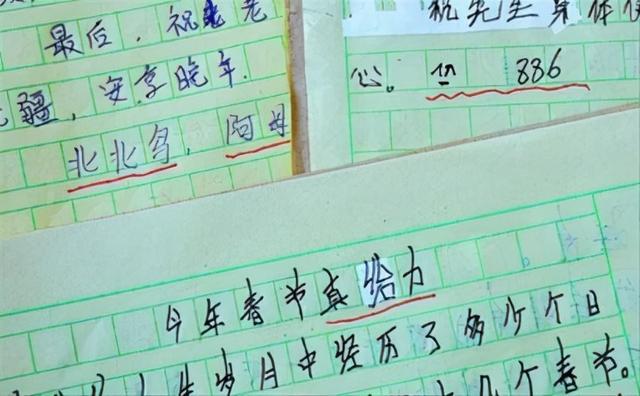 最后，祝老老
疆，安享晚年.
北北，阿母
祝先生身体
心。 886
今年春节真给力
岁月中经历了多少个日
几个春节。